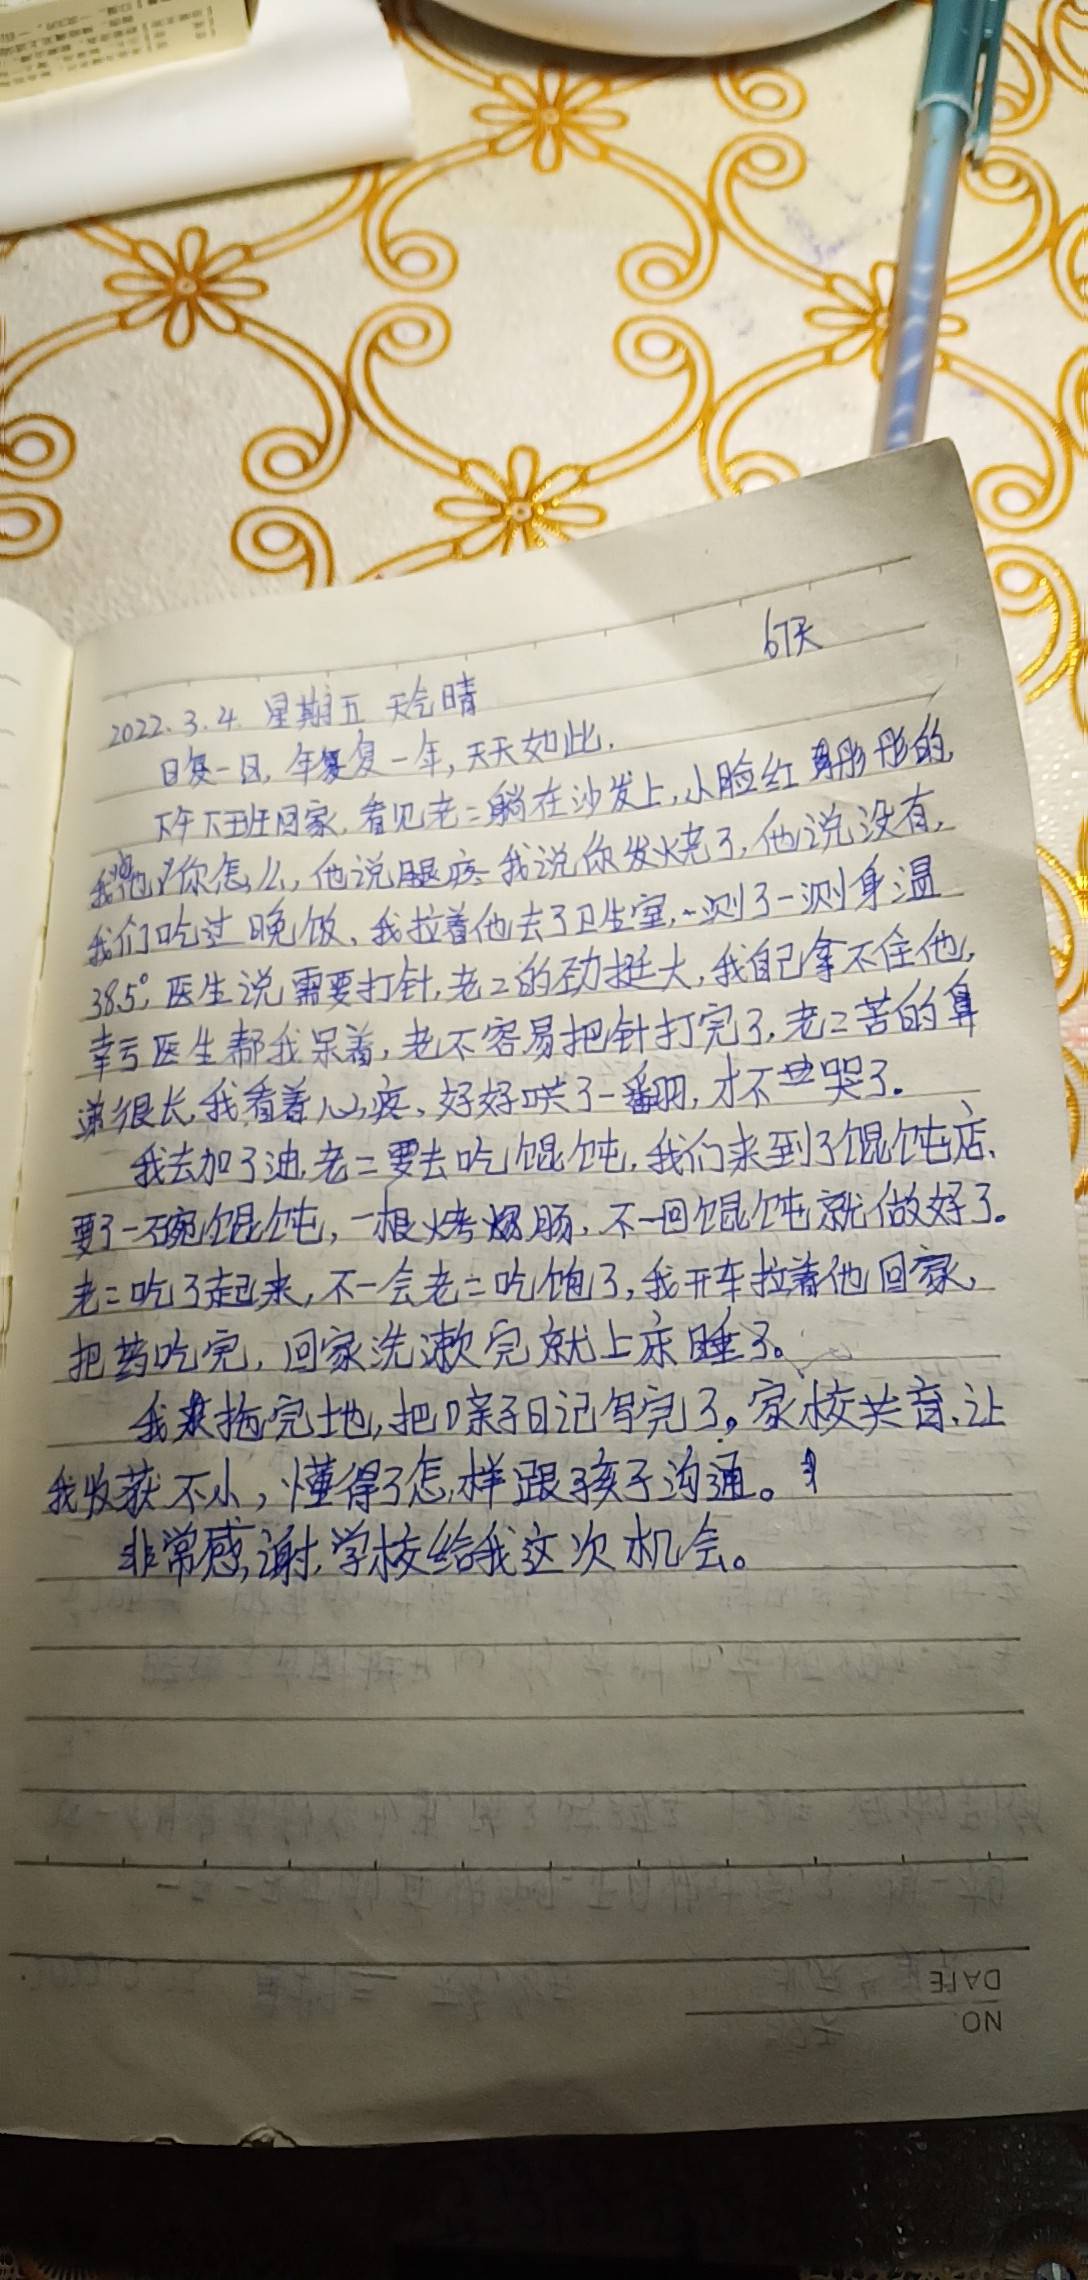 67天
2022.3.4. 星期五 天气晴
日复一日,年复一年,天天如此.
下午下班回家,看见老二躺在沙发上,小脸红彤彤的,
我问他"你怎么,他说腿疼.我说你发火烧了,他说没有,
我们吃过晚饭、我拉着他去了卫生室,一测了一测身温
38.5°,医生说需要打针,老二的劲挺大,我自己拿不住他,
幸亏医生帮我呆着,老不容易把针打完了,老二苦的鼻
涕很长,我看着心疼、好好哄了一翻,才不哭了.
我去加了油,老二要去吃馄饨,我们来到了馄饨店、
要了一碗馄饨,一根烤肠,不一回馄饨就做好了。
老二吃了起来,不一会老二吃饱了,我开车拉着他回家、
把药吃完,回家洗漱完就上床睡了。
我拖完地,把亲子日记写完了。家校共育、让
我收获不小,懂得了怎样跟孩子沟通。
非常感谢,学校给我这次机会。
DATE
NO.